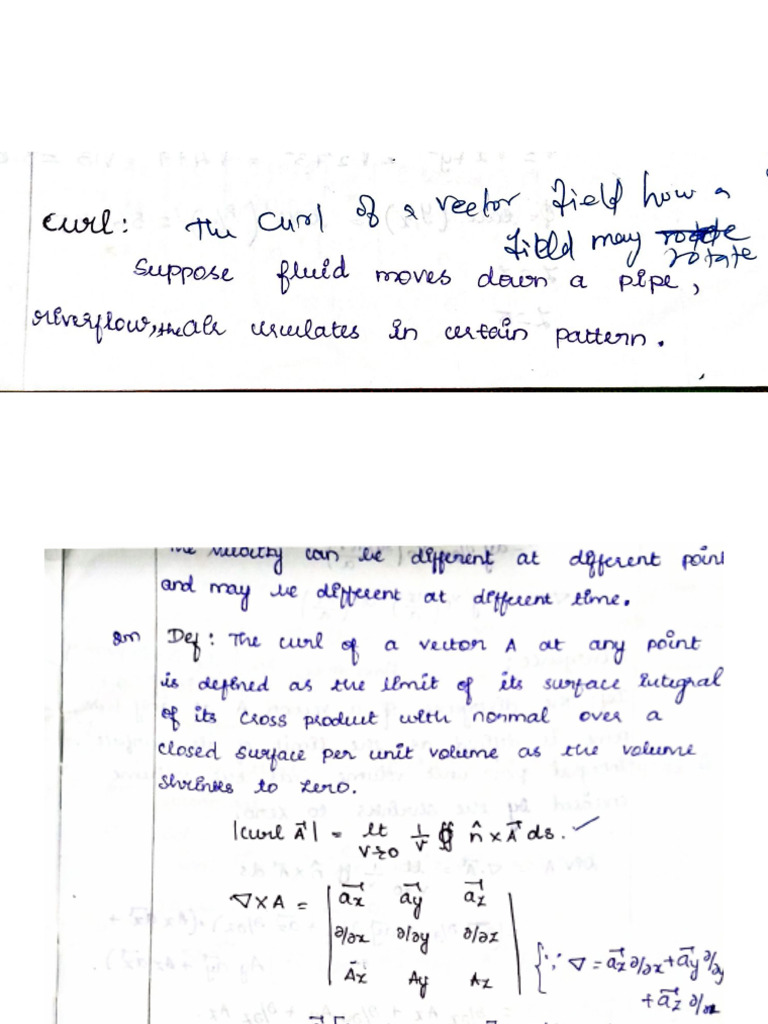 Curl: The Curl of a vector field how a
field may rotate
Suppose fluid moves down a pipe,
riverflow, the air circulates in certain pattern.
The velocity can be different at different point
and may be different at different time.
8m Def: The curl of a vector A at any point
is defined as the limit of its surface integral
of its cross product with normal over a
closed surface per unit volume as the volume
shrinks to zero.
|curl A⃗| = lt V→0 1/V ∯ n̂ × A⃗ ds. ✓
∇×A = | a⃗x a⃗y a⃗z |
| ∂/∂x ∂/∂y ∂/∂z |
| Ax Ay Az |
{∵ ∇ = a⃗x ∂/∂x + a⃗y ∂/∂y
+ a⃗z ∂/∂z